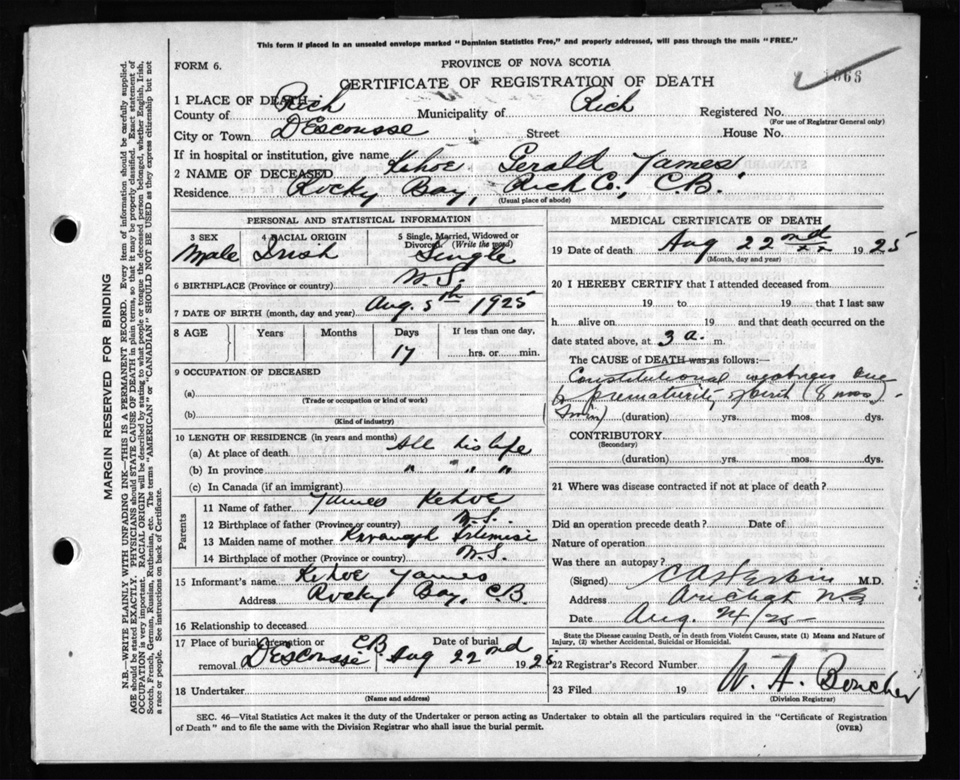 This form if placed in an unsealed envelope marked "Dominion Statistics Free," and properly addressed, will pass through the mails "FREE."
FORM 6.
PROVINCE OF NOVA SCOTIA
CERTIFICATE OF REGISTRATION OF DEATH
1 PLACE OF DEATH
County of Rich Municipality of Rich Registered No.
(For use of Registrar General only)
City or Town D'Escousse Street House No.
If in hospital or institution, give name
2 NAME OF DECEASED Kehoe Gerald James
Residence Rocky Bay, Rich Co., C.B.
(Usual place of abode)
PERSONAL AND STATISTICAL INFORMATION
3 SEX 4 RACIAL ORIGIN 5 Single, Married, Widowed or Divorced (Write the word)
Male Irish Single
6 BIRTHPLACE (Province or country) N.S.
7 DATE OF BIRTH (month, day and year) Aug. 5th 1925
8 AGE Years Months Days If less than one day,
17 hrs. or min.
9 OCCUPATION OF DECEASED
(a)
(Trade or occupation or kind of work)
(b)
(Kind of industry)
10 LENGTH OF RESIDENCE (in years and months)
(a) At place of death All his life
(b) In province " " " "
(c) In Canada (if an immigrant)
Parents
11 Name of father James Kehoe
12 Birthplace of father (Province or country) N.S.
13 Maiden name of mother Kavanagh
14 Birthplace of mother (Province or country) N.S.
15 Informant's name Kehoe James
Address Rocky Bay, C.B.
16 Relationship to deceased
17 Place of burial, cremation or removal D'Escousse CB Date of burial Aug 22nd 1925
18 Undertaker
(Name and address)
MEDICAL CERTIFICATE OF DEATH
19 Date of death Aug 22nd 1925
(Month, day and year)
20 I HEREBY CERTIFY that I attended deceased from
19 to 19 that I last saw
h alive on 19 and that death occurred on
date stated above, at 3 a. m.
The CAUSE of DEATH was as follows:—
Constitutional weakness due
to prematurity of birth (8 mos) -
(Twin) (duration) yrs. mos. dys.
CONTRIBUTORY
(Secondary)
(duration) yrs. mos. dys.
21 Where was disease contracted if not at place of death?
Did an operation precede death? Date of
Nature of operation
Was there an autopsy?
(Signed) M.D.
Address Arichat NS
Date Aug. 24/25
State the Disease causing Death, or in death from Violent Causes, state (1) Means and Nature of Injury, (2) whether Accidental, Suicidal or Homicidal.
22 Registrar's Record Number
23 Filed 19 W. A. Boucher
(Division Registrar)
SEC. 46—Vital Statistics Act makes it the duty of the Undertaker or person acting as Undertaker to obtain all the particulars required in the "Certificate of Registration
of Death" and to file the same with the Division Registrar who shall issue the burial permit. (OVER)
MARGIN RESERVED FOR BINDING
N.B.—WRITE PLAINLY WITH UNFADING INK—THIS IS A PERMANENT RECORD. Every item of information should be carefully supplied.
AGE should be stated EXACTLY. PHYSICIANS should STATE CAUSE OF DEATH in plain terms, so that it may be properly classified. Exact statement of
OCCUPATION is very important. RACIAL ORIGIN will be described by stating to what people or tongue the deceased person belonged, whether English, Irish,
Scotch, French, German, Russian, Ruthenian, etc. The terms "AMERICAN" or "CANADIAN" SHOULD NOT BE USED as they express citizenship but not
a race or people. See instructions on back of Certificate.